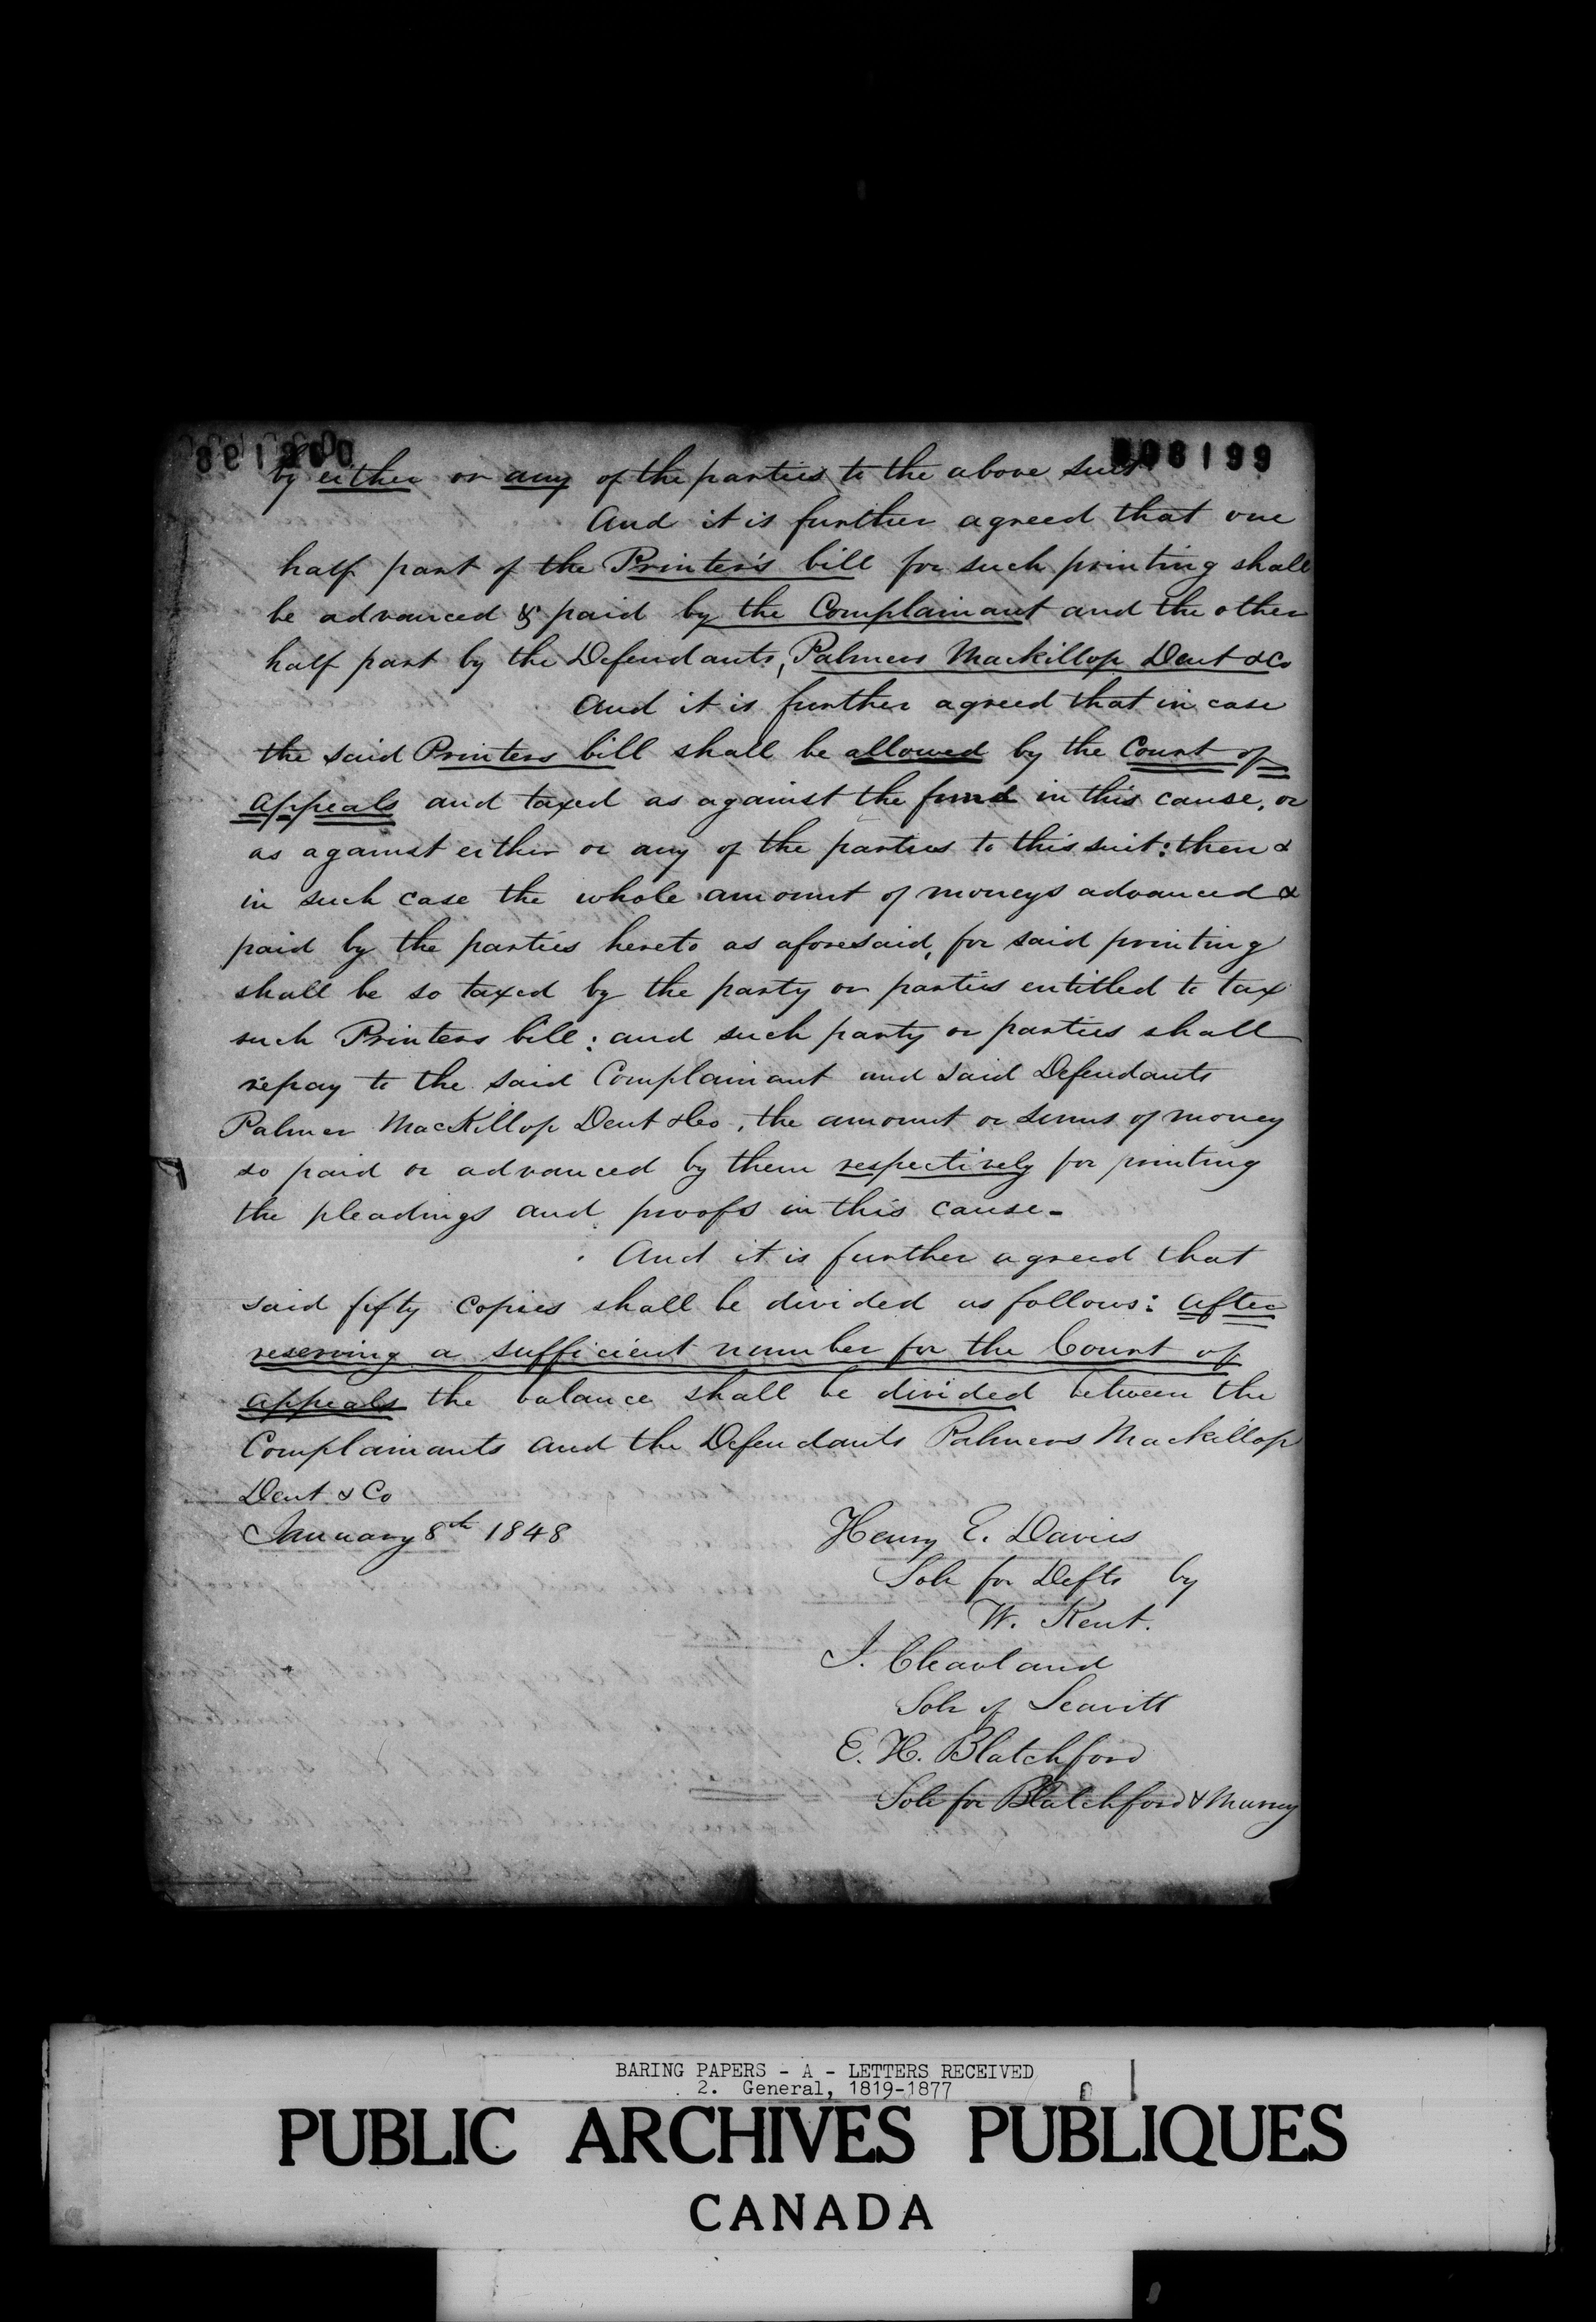 008199
by either or any of the parties to the above suit
And it is further agreed that one
half part of the Printer's bill for such printing shall
be advanced & paid by the Complainant and the other
half part by the Defendants, Palmers Mackillop Dent & Co
And it is further agreed that in case
the said Printers bill shall be allowed by the Court of
Appeals and taxed as against the fund in this cause, or
as against either or any of the parties to this suit: then &
in such case the whole amount of moneys advanced &
paid by the parties hereto as aforesaid, for said printing
shall be so taxed by the party or parties entitled to tax
such Printers bill: and such party or parties shall
repay to the said Complainant and said Defendants
Palmer MacKillop Dent & Co, the amount or sums of money
so paid or advanced by them respectively for printing
the pleadings and proofs in this cause-
And it is further agreed that
said fifty copies shall be divided as follows: after
reserving a sufficient number for the Court of
Appeals the balance shall be divided between the
Complainants and the Defendants Palmers Mackillop
Dent & Co
January 8th 1848
Henry E. Davies
Solr for Defts by
W. Kent.
J. Cleaveland
Solr of Leavitt
E. H. Blatchford
Solr for Blatchford & Murray
BARING PAPERS - A - LETTERS RECEIVED
2. General, 1819-1877
PUBLIC ARCHIVES PUBLIQUES
CANADA